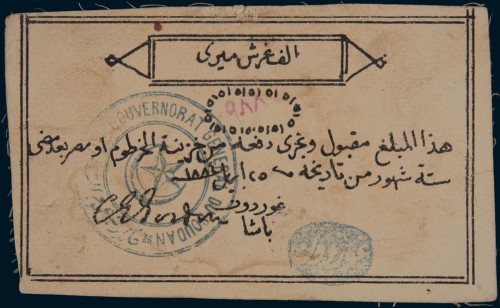 الف غرش ميرى
٩٨٨
هذا المبلغ مقبول وتجرى دفعه من خزينة الخرطوم او مصر بعد مضى
ستة شهور من تاريخه ٢٥ ابريل ١٨٨٤
غوردون
باشا
GOUVERNORAT GENERAL DU SOUDAN